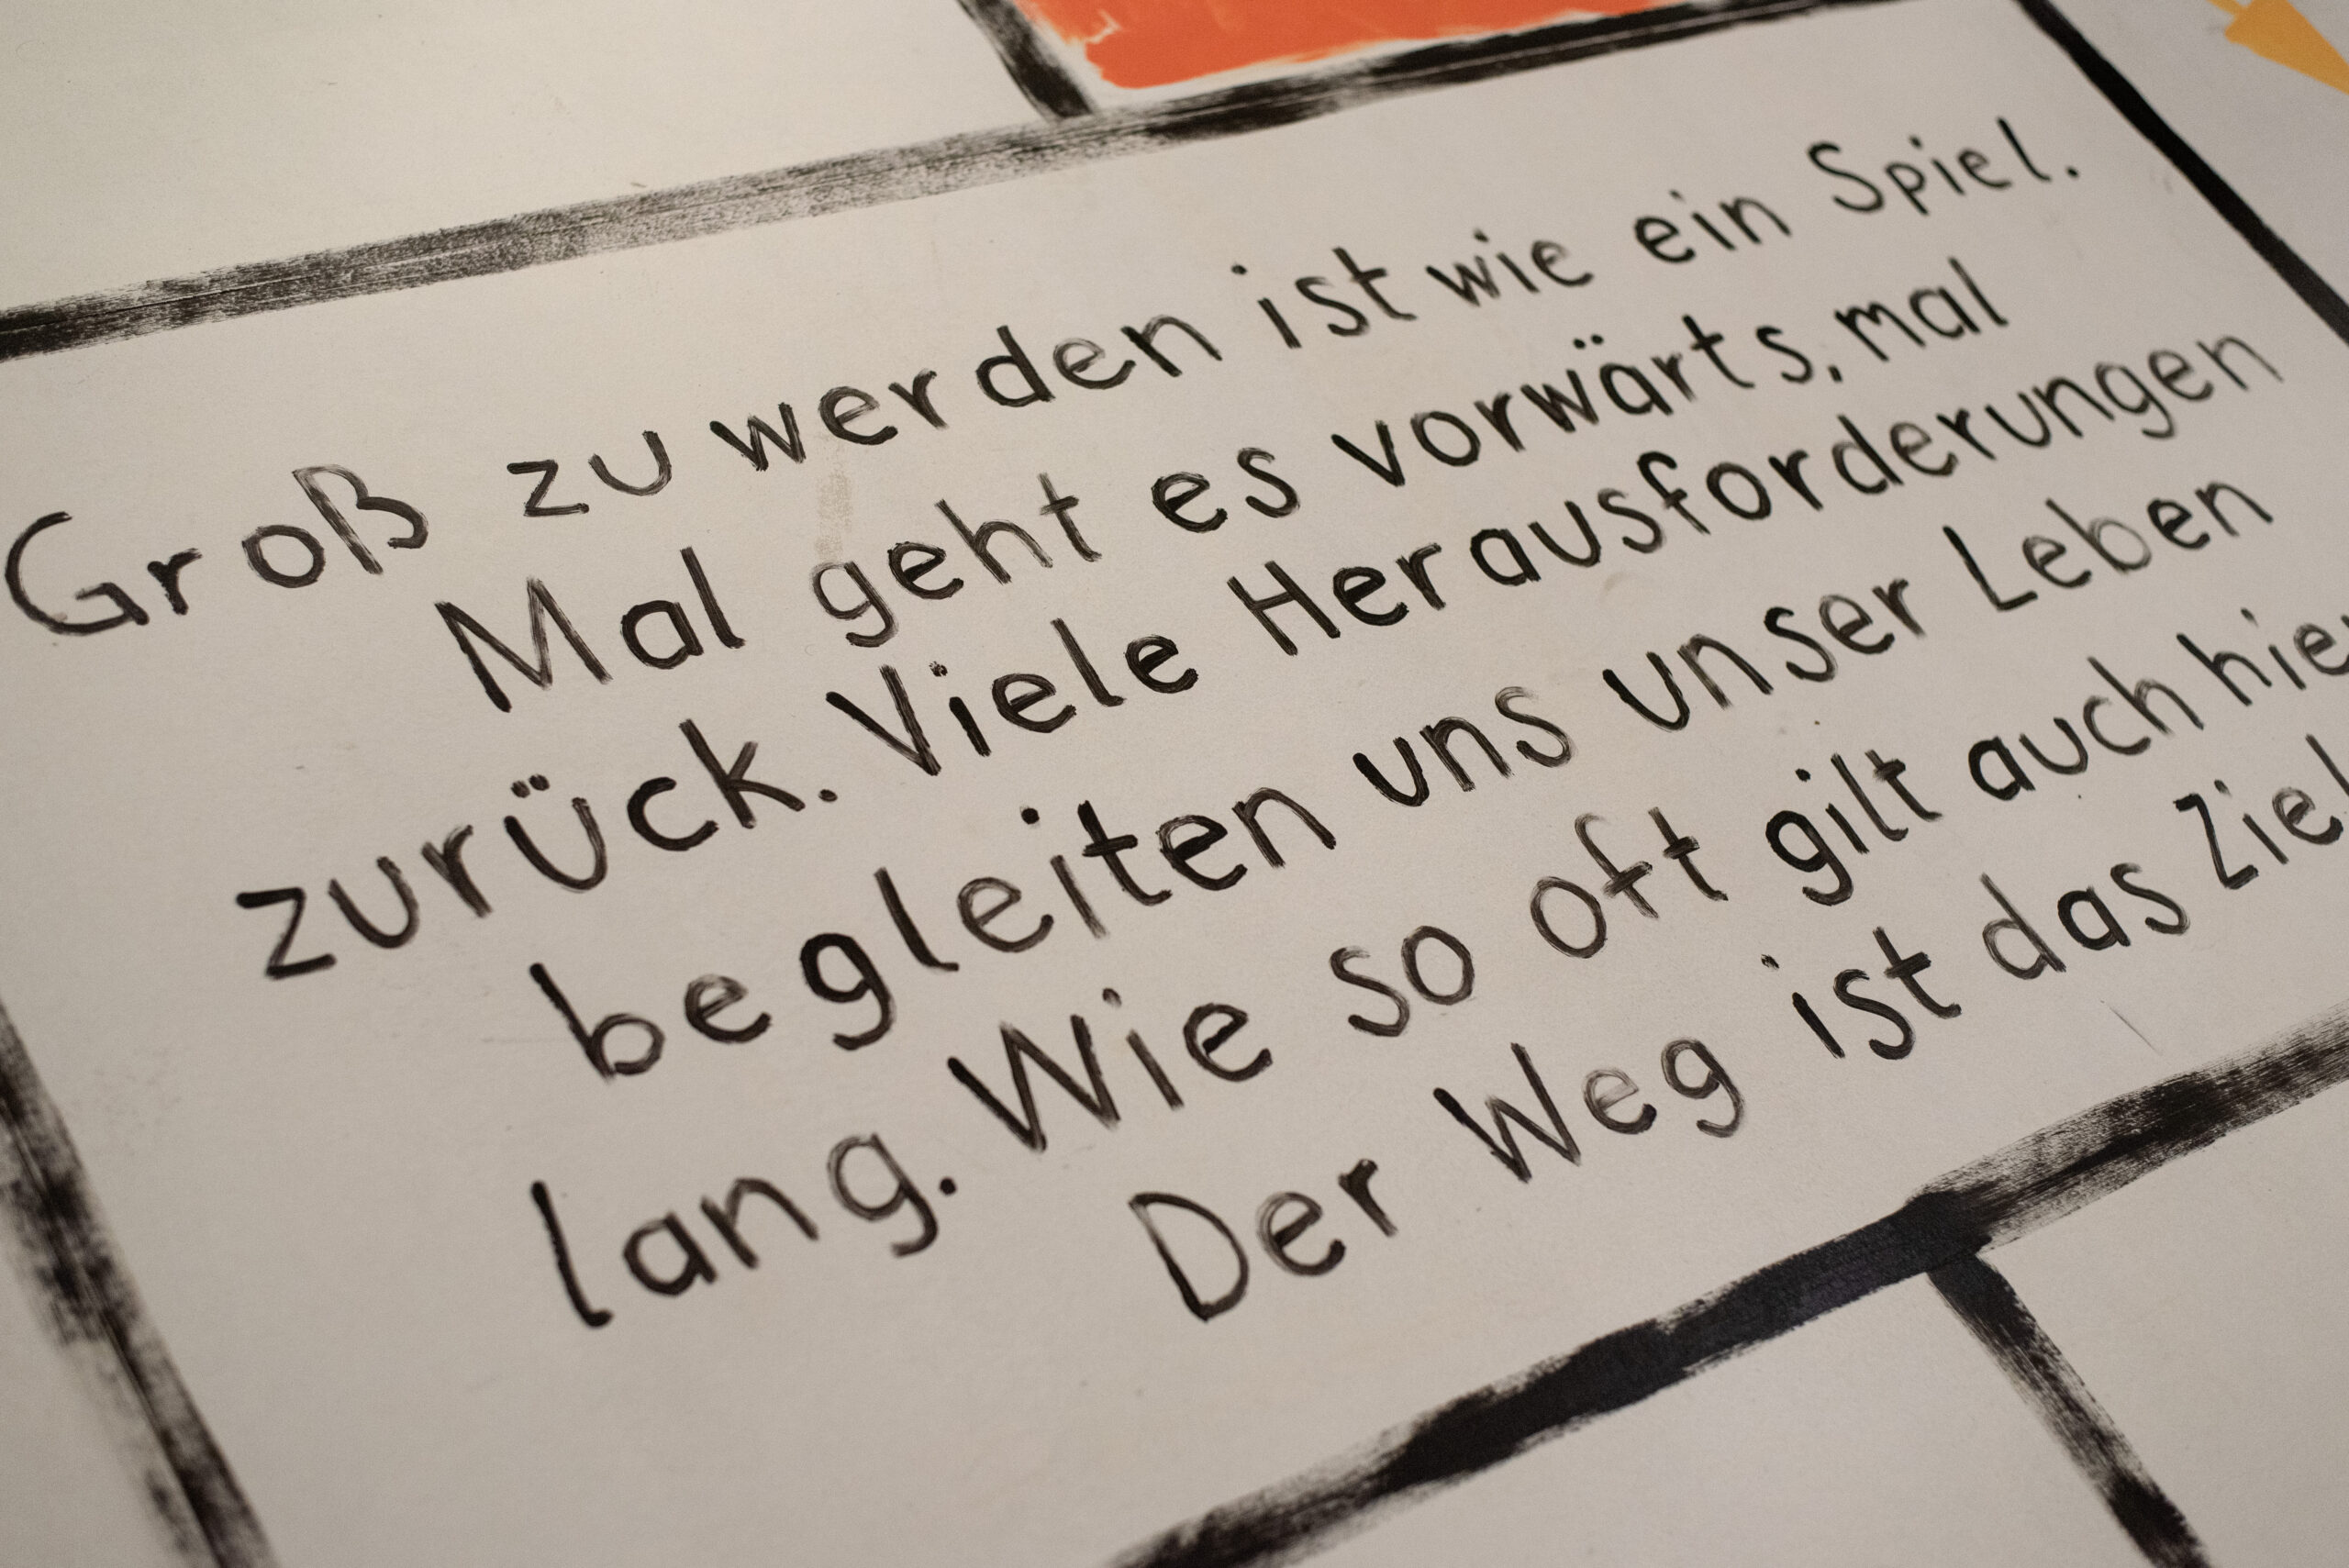 Groß zu werden ist wie ein Spiel.
Mal geht es vorwärts, mal
zurück. Viele Herausforderungen
begleiten uns unser Leben
lang. Wie so oft gilt auch hie
Der Weg ist das Ziel